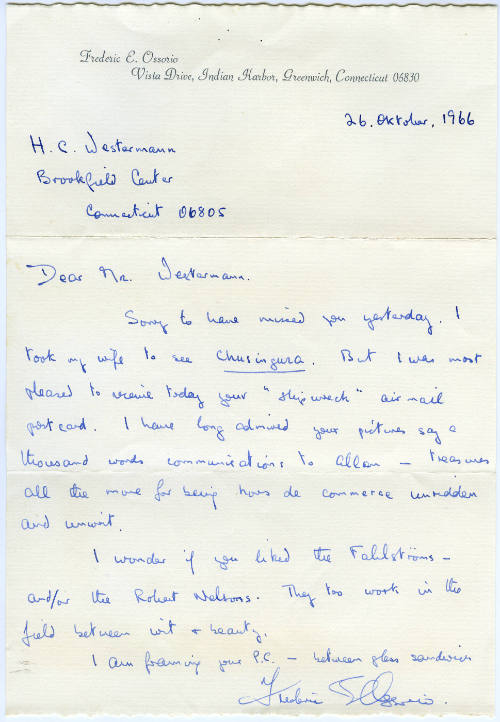 Frederic E. Ossorio
Vista Drive, Indian Harbor, Greenwich, Connecticut 06830
26. Oktober, 1966
H. C. Westermann
Brookfield Center
Connecticut 06805
Dear Mr. Westermann.
Sorry to have missed you yesterday. I
took my wife to see Chusingura. But I was most
pleased to receive today your "shipwreck" airmail
postcard. I have long admired your pictures say a
thousand words communications to Alfon — treasures
all the more for being hors de commerce unridden
and unwrit.
I wonder if you liked the Fahlströms —
and/or the Robert Nelsons. They too work in the
field between wit + beauty.
I am framing your P.C. — between glass sandwich
Frederic E Ossorio.